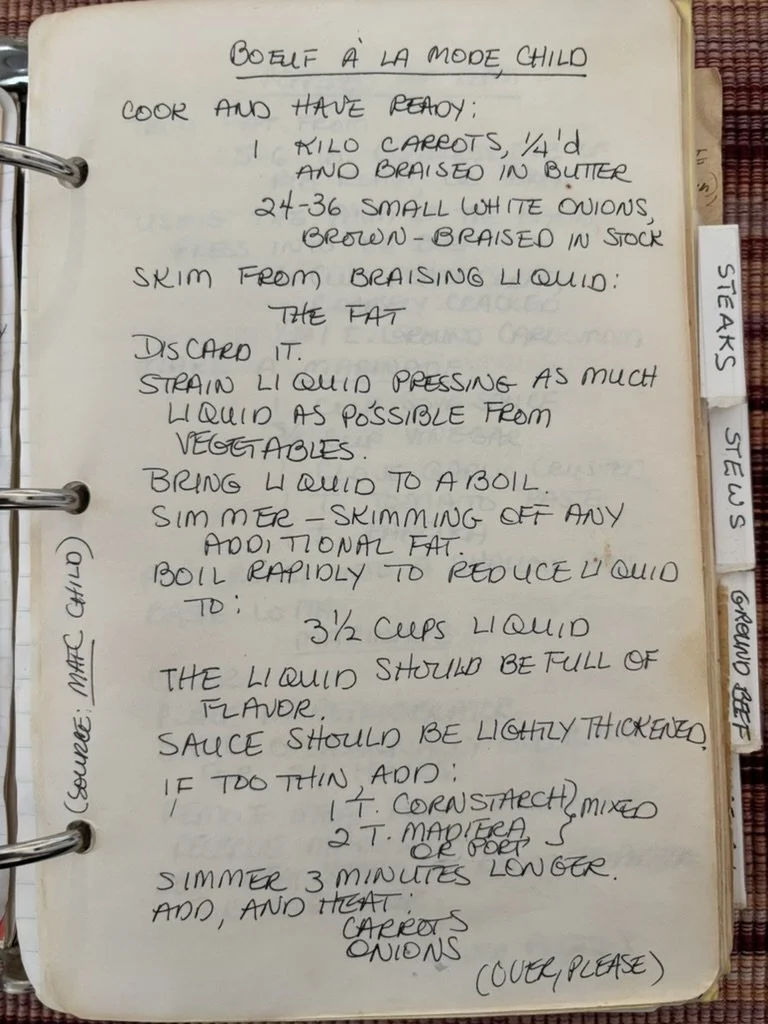 BOEUF À LA MODE, CHILD
COOK AND HAVE READY:
1 KILO CARROTS, 1/4'd
AND BRAISED IN BUTTER
24-36 SMALL WHITE ONIONS,
BROWN-BRAISED IN STOCK
SKIM FROM BRAISING LIQUID:
THE FAT
DISCARD IT.
STRAIN LIQUID PRESSING AS MUCH
LIQUID AS POSSIBLE FROM
VEGETABLES.
BRING LIQUID TO A BOIL.
SIMMER - SKIMMING OFF ANY
ADDITIONAL FAT.
BOIL RAPIDLY TO REDUCE LIQUID
TO:
3 1/2 CUPS LIQUID
THE LIQUID SHOULD BE FULL OF
FLAVOR.
SAUCE SHOULD BE LIGHTLY THICKENED.
IF TOO THIN, ADD:
1 T. CORNSTARCH } MIXED
2 T. MADIERA
OR PORT
SIMMER 3 MINUTES LONGER.
ADD, AND HEAT:
CARROTS
ONIONS
(OVER, PLEASE)
(SOURCE: MAFC CHILD)
STEAKS
STEWS
GROUND BEEF